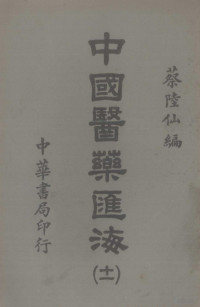 蔡陸仙編
中國醫藥匯海
(十一)
中華書局印行